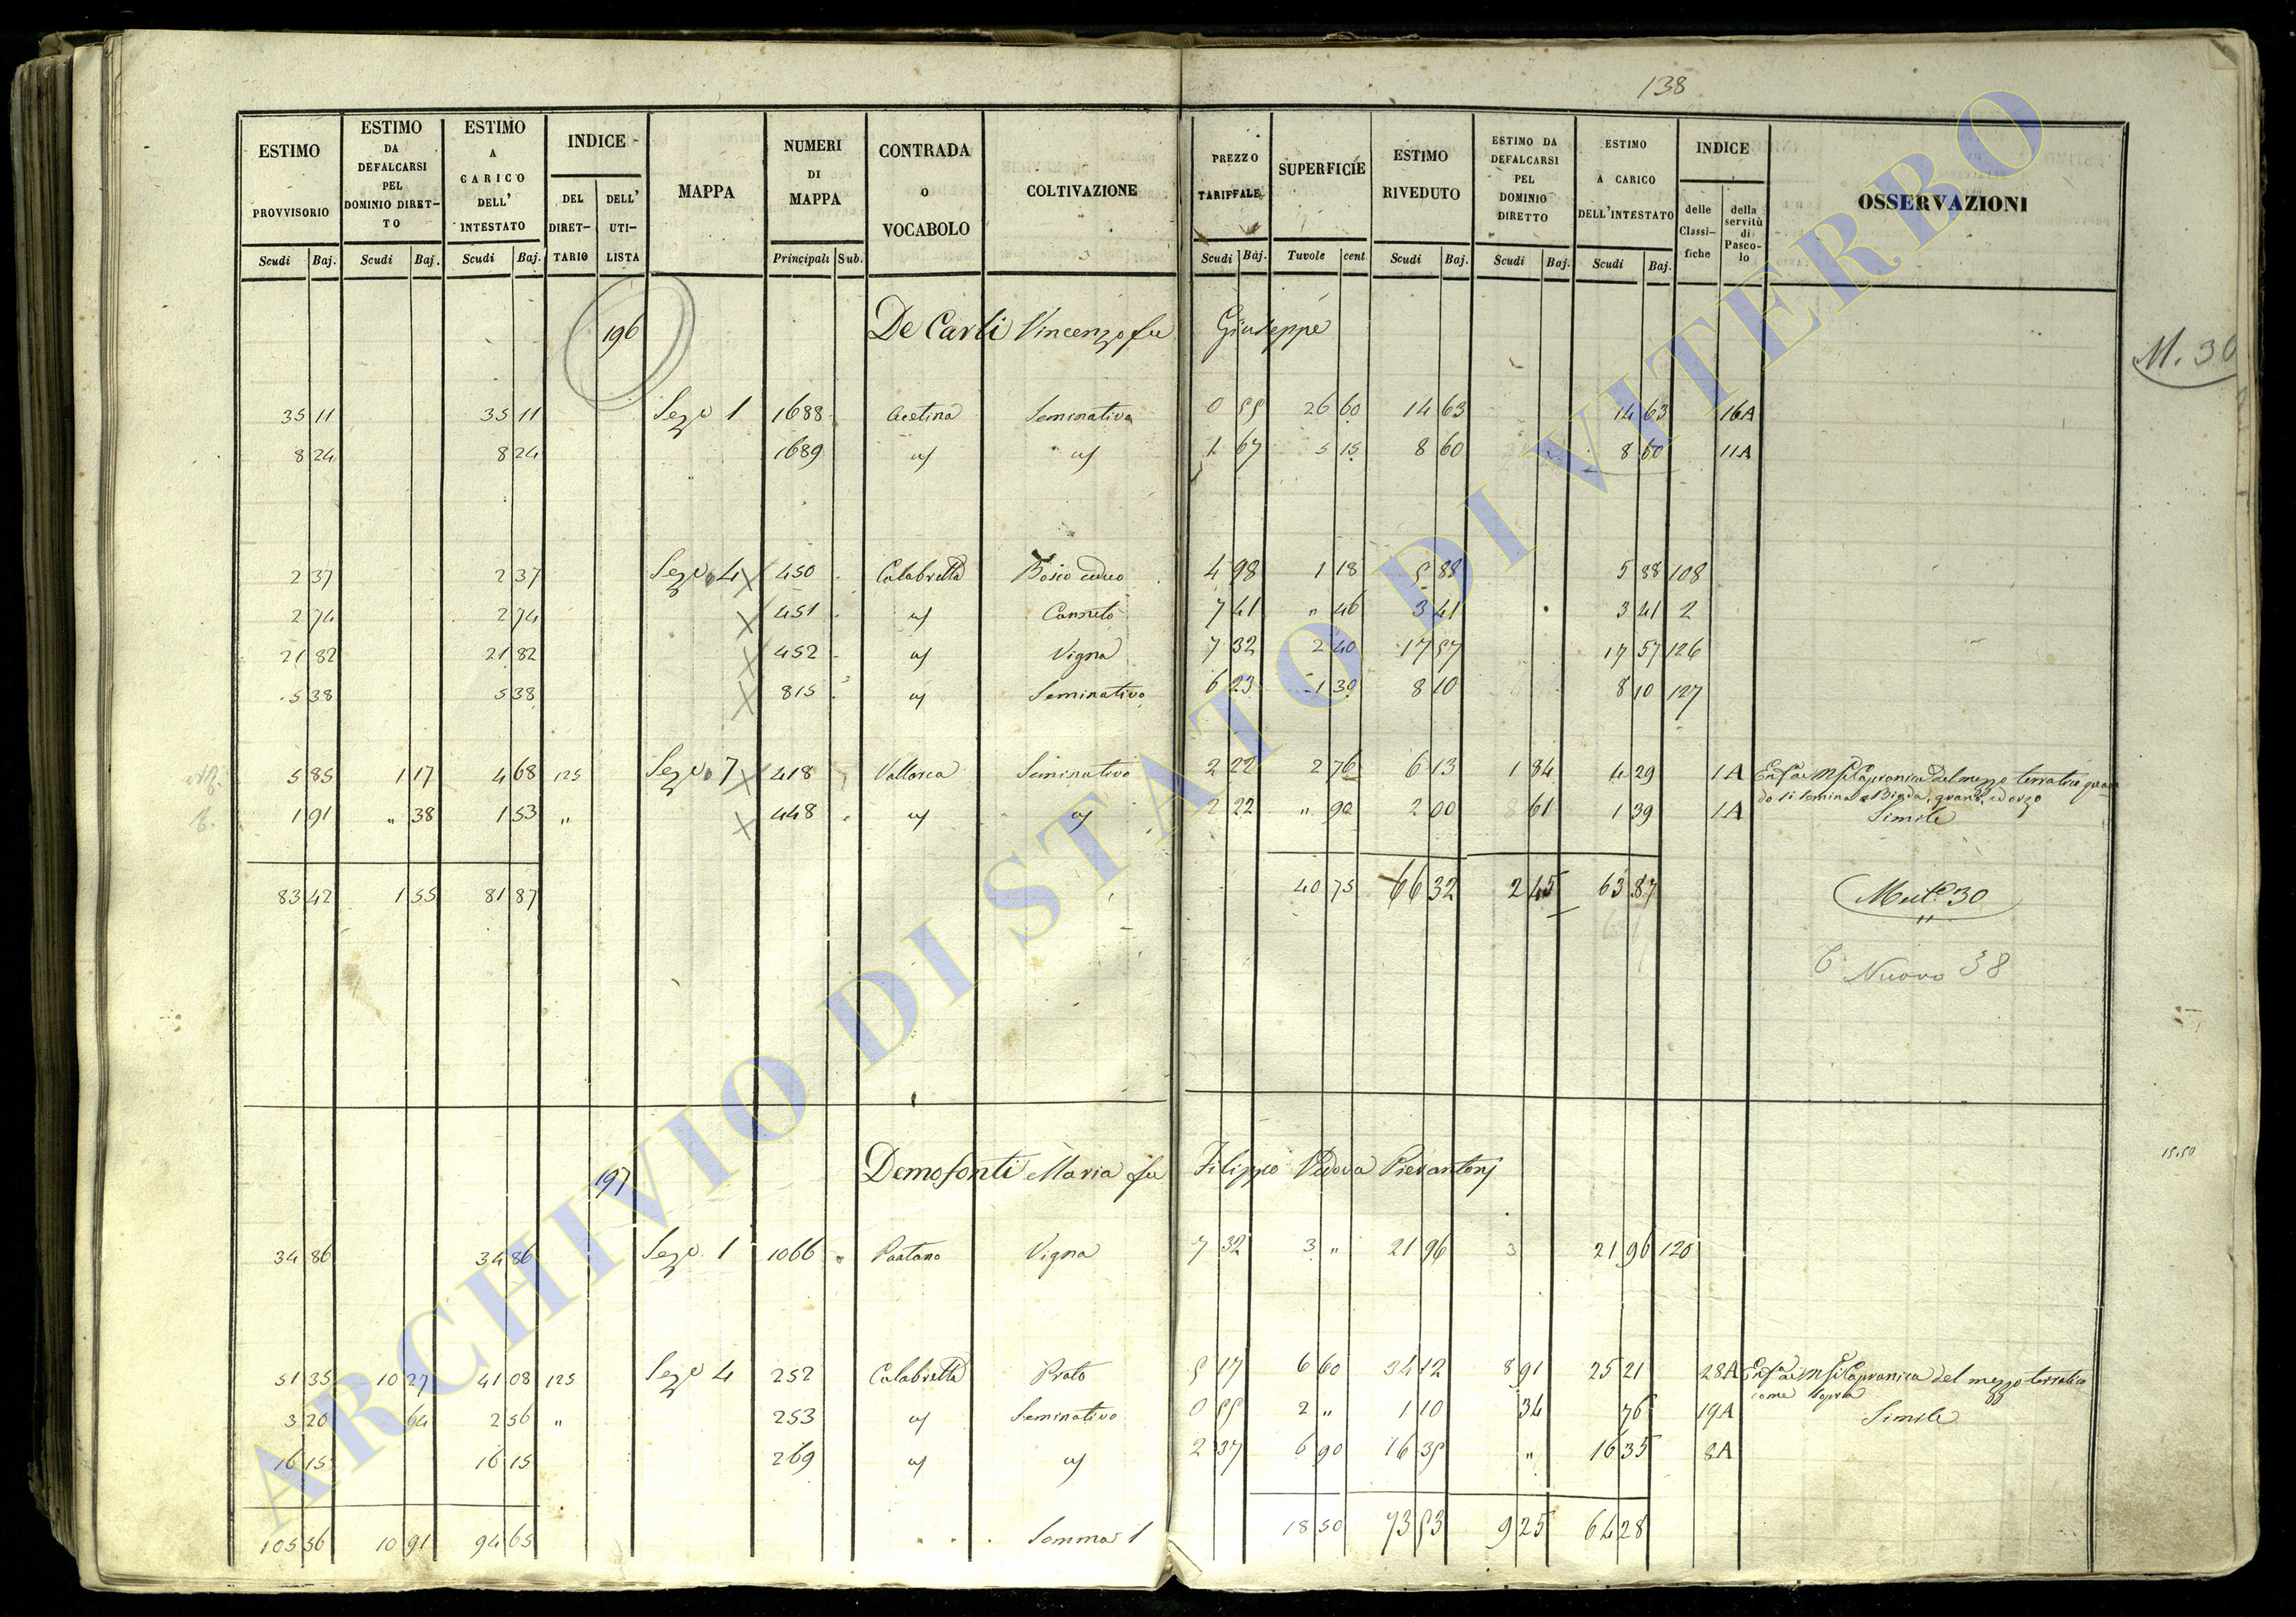 138
ESTIMO PROVVISORIO | ESTIMO DA DEFALCARSI PEL DOMINIO DIRET-TO | ESTIMO A CARICO DELL' INTESTATO | INDICE | MAPPA | NUMERI DI MAPPA | CONTRADA O VOCABOLO | COLTIVAZIONE | PREZZO TARIFFALE | SUPERFICIE | ESTIMO RIVEDUTO | ESTIMO DA DEFALCARSI PEL DOMINIO DIRETTO | ESTIMO A CARICO DELL'INTESTATO | INDICE | OSSERVAZIONI
Scudi Baj. | Scudi Baj. | Scudi Baj. | DEL DIRET-TARIO | DELL' UTI-LISTA | Principali Sub. | Scudi Baj. | Tavole cent | Scudi Baj. | Scudi Baj. | Scudi Baj. | delle Classi-fiche | della servitù di Pasco-lo
196 De Carli Vincenzo fu Giuseppe
M. 30
35 11 | 35 11 | Sez. 1 | 1688 | Seminativo | 0 55 | 26 60 | 14 63 | 14 63 | 16A
8 24 | 8 24 | 1689 | 1 67 | 5 15 | 8 60 | 8 60 | 11A
2 37 | 2 37 | Sez. 4 | 450 | Calabretta | Bosco ceduo | 4 98 | 1 18 | 5 88 | 5 88 | 108
2 74 | 2 74 | 451 | Canneto | 7 41 | " 46 | 3 41 | 3 41 | 2
21 82 | 21 82 | 452 | Vigna | 7 32 | 2 40 | 17 57 | 17 57 | 126
5 38 | 5 38 | 815 | Seminativo | 6 23 | 1 30 | 8 10 | 8 10 | 127
5 85 | 1 17 | 4 68 | 125 | Sez. 7 | 418 | Vallorca | Seminativo | 2 22 | 2 76 | 6 13 | 1 84 | 4 29 | 1A | Capranica del mezzo terratico quan
do si semina a Biada, grano, ed orzo
1 91 | " 38 | 1 53 | " | 448 | 2 22 | " 90 | 2 00 | 61 | 1 39 | 1A | Simile
83 42 | 1 55 | 81 87 | 40 75 | 66 32 | 2 45 | 63 87
Mut.e 30
Nuovo 38
197 Demofonti Maria fu Filippo Vedova Pierantonj
15.50
34 86 | 34 86 | Sez. 1 | 1066 | Pantano | Vigna | 7 32 | 3 " | 21 96 | 21 96 | 120
51 35 | 10 27 | 41 08 | 125 | Sez. 4 | 252 | Calabretta | Prato | 5 17 | 6 60 | 34 12 | 8 91 | 25 21 | 28A | Capranica del mezzo terratico
come sopra
3 20 | 64 | 2 56 | " | 253 | Seminativo | 0 55 | 2 " | 1 10 | 34 | 76 | 19A | Simile
16 15 | 16 15 | 269 | 2 37 | 6 90 | 16 35 | " | 16 35 | 8A
105 56 | 10 91 | 94 65 | Somma | 18 50 | 73 53 | 9 25 | 64 28
ARCHIVIO DI STATO DI VITERBO